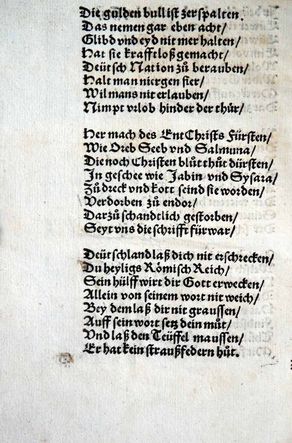 Die gulden bull ist zerspalten.
Das nemen gar eben acht/
Glibd vnd eyd nit mer halten/
Hat sie krafftloß gemacht/
Deütsch Nation zů berauben/
Halt man niergen fier/
Wil mans nit erlauben/
Nimpt vrlob hinder der thür/
Her mach des EntChrists Fürsten/
Wie Oreb Seeb vnd Salmuna/
Die noch Christen blůtt thůt dürsten/
In geschee wie Jabin vnd Sysara/
Zů dreck vnd kott seind sie worden/
Verdorben zů endor/
Darzů schandtlich gestorben/
Seyt vns die schrifft fürwar/
Deütschland laß dich nit erschrecken/
Du heyligs Römisch Reich/
Sein hülff wirt dir Gott erwecken/
Allein von seinem wort nit weich/
Bey dem laß dir nit graussen/
Auff sein wort setz dein můt/
Vnd laß den Teüffel maussen/
Er hat kein straußfedern hůt.